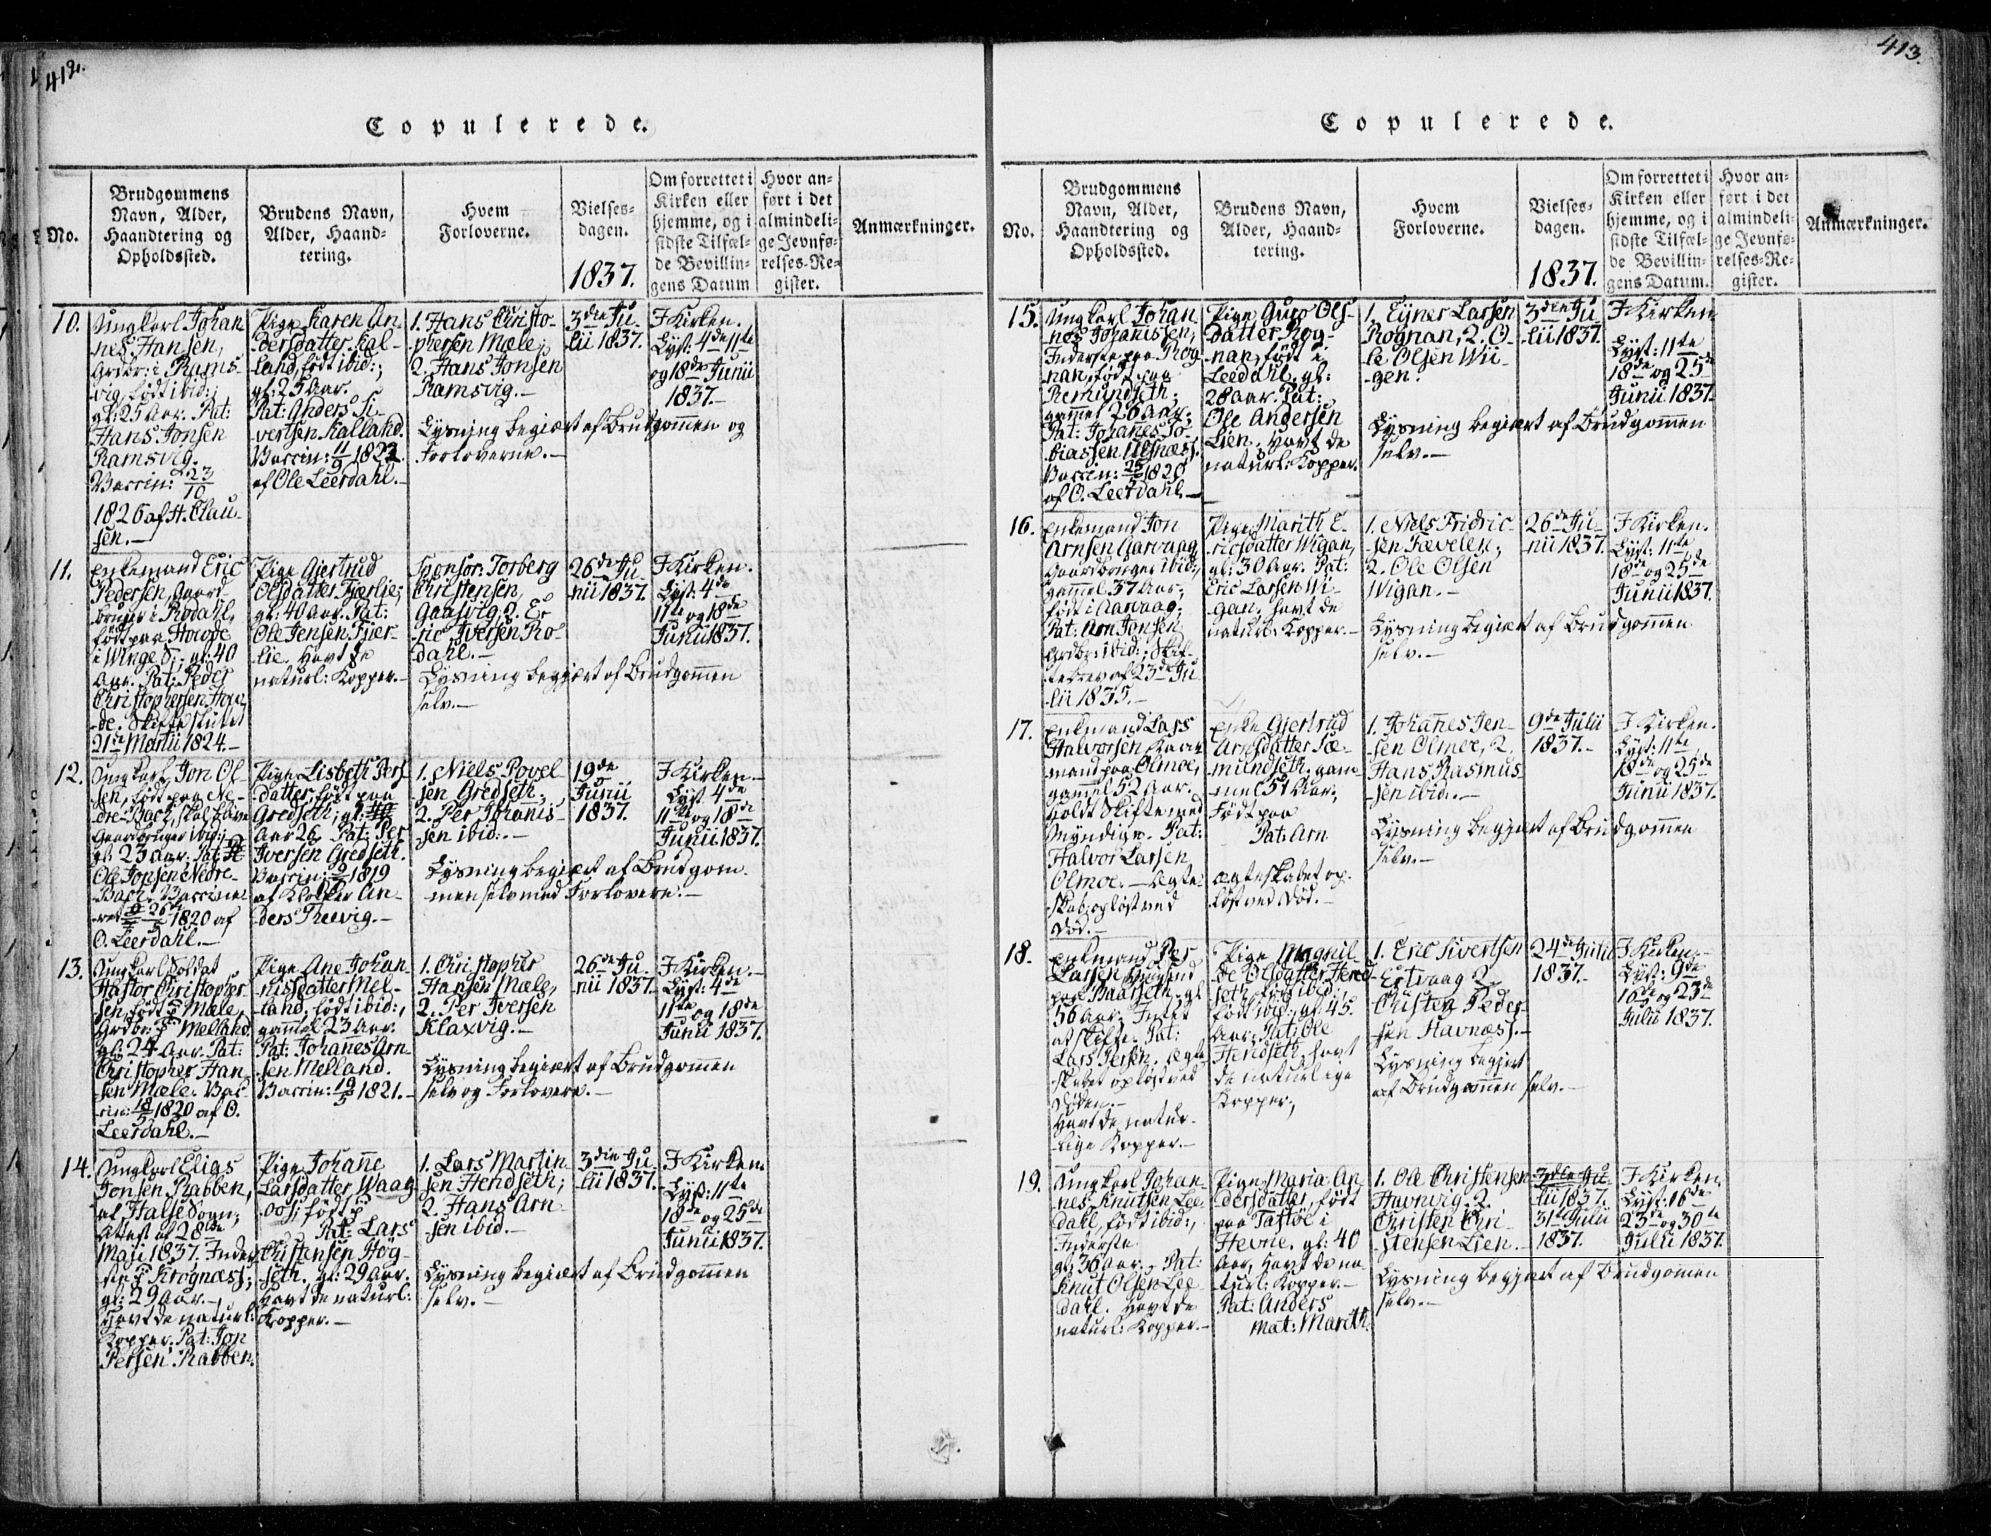 412.
Copulerede.
No.
Brudgommens
Navn, Alder,
Haandtering og
Opholdssted.
Brudens Navn,
Alder, Haand-
tering.
Hvem
Forloverne.
Vielses-
dagen.
1837.
Om forrettet i
Kirken eller
hjemme, og i
sidste Tilfæl-
de Bevillin-
gens Datum
Hvor an-
ført i det
almindeli-
ge Jevnfø-
relses-Re-
gister.
Anmærkninger.
10.
Ungkarl Johan
nes Hansen,
Grdbr: i Rams-
vig, født ibid:;
gl: 25 Aar. Pat:
Hans Jonsen
Ramsvig.
Vaccin: 23/10
1826 af H. Clau-
sen.-
Pige Karen An-
dersdatter Kal-
land, født ibid:;
gl: 25 Aar.
Pat: Anders Si-
vertsen Kalland.
Vaccin: 11/9 1822.
af Ole Leerdahl.-
1. Hans Christo-
phersen Mæle,
2. Hans Jonsen
Ramsvig.-
Lysning begiært af Brudgommen og
Forloverne.-
3die Ju-
lii 1837.
I Kirken.
Lyst: 4de 11te
og 18de Junii
1837.-
11.
Enkemand Eric
Pedersen, Gaard-
bruger i Rodahl,
født paa
i Winge; gl: 40
Aar. Pat: Peder
Christophersen
21de Martii 1824.-
Pige Gjertrud
Olsdatter Fjærlie;
gl: 40 Aar. Pat:
Ole Jensen Fjer-
lie. Havt de
naturl: Kopper.-
Sponsor: Torberg
Christensen,
Gaasvig, 2. Er
ric Iversen Ro-
dahl.-
Lysning begjært af Brudgommen
selv.-
26de Ju-
nii 1837.
I Kirken.
Lyst: 4de
11te og 18de
Junii 1837.
12.
Ungkarl Jon Ol-
sen, født paa Ne-
dre-Back, skal have
Gaardbruger ibid:;
gl: 23 Aar. Pat:
Ole Jonsen Nedre-
Back. Vaccine-
ret 26/5 1820 af
O. Leerdahl.-
Pige Lisbeth Pers
datter, født paa
Gredseth, gl:
Aar 26. Pat: Per
Iversen Gredseth.
Vaccin: 1819
af Klokker An-
ders Theevig.-
1. Niels Povel
sen Gredseth,
2. Per Johannis-
sen ibid:.-
Lysning begiært af Brudgom-
men selv med Forlovere.-
19de
Junii
1837.
I Kirken-
Lyst 4de
11te og 18de
Junii 1837.
13.
Ungkarl Soldat
Hastor Christopher-
sen, født Mæle,
Grdbr: Melland
gl: 24 Aar. Pat:
Christopher Han-
sen Mæle. Vac-
cin: 18/5 1820 af O.
Leerdahl.-
Pige Ane Johan-
nisdatter Mel-
land, født ibid:,
gammel 23 Aar.
Pat: Johanes Arn-
sen Melland.
Vaccin: 19/5 1821.-
1. Christopher
Hansen Mæle,
2. Per Iversen
Klaxvig.-
Lysning begiært af Brudgommen
selv og Forlovere.-
26de Ju-
nii 1837.
I Kirken.-
Lyst: 4de
11te og 18de
Junii 1837.
14.
Ungkarl Elias
Jonsen Rabben,
af Halse Sogn;
Attest af 28de
Maji 1837. Inder-
ste Krognæss;
gl: 29 Aar.-
Havt de naturl:
Kopper. Pat: Jon
Persen Rabben.
Pige Johanne
Larsdatter Waag
født
Pat: Lars
Christensen Høg-
seth. gl: 29 Aar.
Havt de naturl:
Kopper.-
1. Lars Martin-
sen Hendseth;
2. Hans Arn-
sen ibid.-
Lysning begiært af Brudgommen
selv.-
3die Ju-
lii 1837.
I Kirken
Lyst: 11te
18de og 25de
Junii 1837.
413.
Copulerede.
No.
Brudgommens
Navn, Alder,
Haandtering og
Opholdssted.
Brudens Navn,
Alder, Haand-
tering.
Hvem
Forloverne.
Vielses-
dagen.
1837.
Om forrettet i
Kirken eller
hjemme, og i
sidste Tilfæl-
de Bevillin-
gens Datum.
Hvor an-
ført i det
almindeli-
ge Jevnfø-
relses-Re-
gister.
Anmærkninger.
15.
Ungkarl Johan
nes Johanissen,
Inderste paa Rog
nan, født paa
Remundseth,
gammel 26 Aar.
Pat: Johanes To-
biassen Ulsnæss.
Vaccin: 25/5 1820
af O. Leerdahl.-
Pige Guro Ols-
datter Rog-
nan, født i
Leedahl, gl:
28 Aar. Pat:
Ole Andersen
Lien. Havt de
naturl: Kopper.
1. Ejner Larsen
Rognan, 2. O-
le Olsen Wii-
gen.
Lysning begiært af Brudgommen
selv.-
3die Ju
lii 1837.
I Kirken
Lyst: 11te
18de og 25de
Junii 1837.
16.
Enkemand Jon
Arnsen Aarvaag
Gaardbruger ibid:,
gammel 37 Aar,
født i Aarvaag;
Pat: Arn Jonsen
Grdbr: ibid:; Skif-
tebrev af 23de Ju
lii 1835.-
Pige Marith E-
ricsdatter Wigan,
gl: 30 Aar. Pat:
Eric Larsen Wi-
gan. Havt de
naturl: Kopper.-
1. Niels Fridric
sen Fævelen,
2. Ole Olsen
Wigan.-
Lysning begiært af Brudgommen
selv.-
26de Ju-
nii 1837.
I Kirken.
Lyst: 11te
18de og 25de
Junii 1837.
17.
Enkemand Lars
Halvorsen Kaar
mand paa Olmoe,
gammel 52 Aar.
holdt Skifte med
Myndige. Pat:
Halvor Larsen
Olmoe.-Ægte-
skab opløst ved
Død.-
Enke Gjertrud
Arnsdatter Sæ-
mundseth, gam
mel 51 Aar,
Født paa
Pat: Arn
Ægteskabet op-
løst ved Død.-
1. Johannes Jen-
sen Olmoe, 2.
Hans Rasmus-
sen ibid:.-
Lysning begjært af Brudgommen
selv.-
9de Julii
1837.-
I Kirken.
Lyst: 11te
18de og 25de
Junii 1837.
18.
Enkemand Per
Larsen Huusmd
paa Baarseth, gl:
56 Aar. Intet
at skifte. Pat:
Lars Persen. Ægte
skabet opløst ved
Døden.-
Havt de natur-
lige Kopper.-
Pige Magnil
de Olsdatter Hend-
seth, født ibid:,
gl: 45.
Aar. Pat: Ole
Hendseth. Havt
de naturlige
Kopper,
1. Eric Sivertsen
Ertvaag 2.
Christen Peder-
sen Stavnæss.-
Lysning begjert
af Brudgommen selv.-
24de Julii
1837.-
I Kirken.-
Lyst: 9de
16de og 23de
Julii 1837.
19.
Ungkarl Johan-
nes Knutsen Lee-
dahl, født ibid:,
Inderste
gl: 36 Aar. Pat:
Knut Olsen Lee-
dahl. Havt de
naturl: Kopper.-
Pige Maria An
dersdatter, født
paa Taftøe i
Hevne. gl: 40
Aar, Havt de na
turl: Kopper.-
Pat: Anders
Mat: Marith.
1. Ole Christensen
Havnvig. 2.
Christen Chri-
stensen Lien.-
Lysning begjært af Brudgommen
selv.-
3die Ju
lii 1837.
31te Julii
1837.
I Kirken.
Lyst: 16de
23de og 30te
Julii 1837.